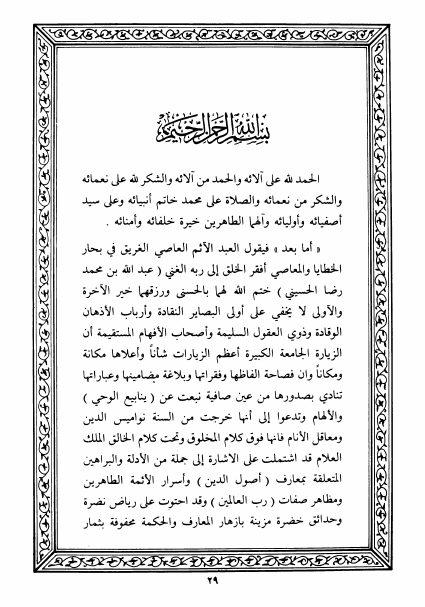 بسم الله الرحمن الرحيم
الحمد لله على آلائه والحمد من آلائه والشكر لله على نعمائه
والشكر من نعمائه والصلاة على محمد خاتم أنبيائه وعلى سيد
أصفيائه وأوليائه وآلهما الطاهرين خيرة خلفائه وأمنائه .
« أما بعد » فيقول العبد الآثم العاصي الغريق في بحار
الخطايا والمعاصي أفقر الخلق إلى ربه الغني ( عبد الله بن محمد
رضا الحسيني ) ختم الله لهما بالحسنى ورزقهما خير الآخرة
والأولى لا يخفي على أولى البصاير النقادة وأرباب الأذهان
الوقادة وذوي العقول السليمة وأصحاب الأفهام المستقيمة أن
الزيارة الجامعة الكبيرة أعظم الزيارات شأناً وأعلاها مكانة
ومكاناً وان فصاحة الفاظها وفقراتها وبلاغة مضامينها وعباراتها
تنادي بصدورها من عين صافية نبعت عن ( ينابيع الوحي )
والألهام وتدعوا إلى أنها خرجت من السنة نواميس الدين
ومعاقل الأنام فانها فوق كلام المخلوق وتحت كلام الخالق الملك
العلام قد اشتملت على الاشارة إلى جملة من الأدلة والبراهين
المتعلقة بمعارف ( أصول الدين ) وأسرار الأئمة الطاهرين
ومظاهر صفات ( رب العالمين ) وقد احتوت على رياض نضرة
وحدائق خضرة مزينة بازهار المعارف والحكمة محفوفة بثمار
٢٩